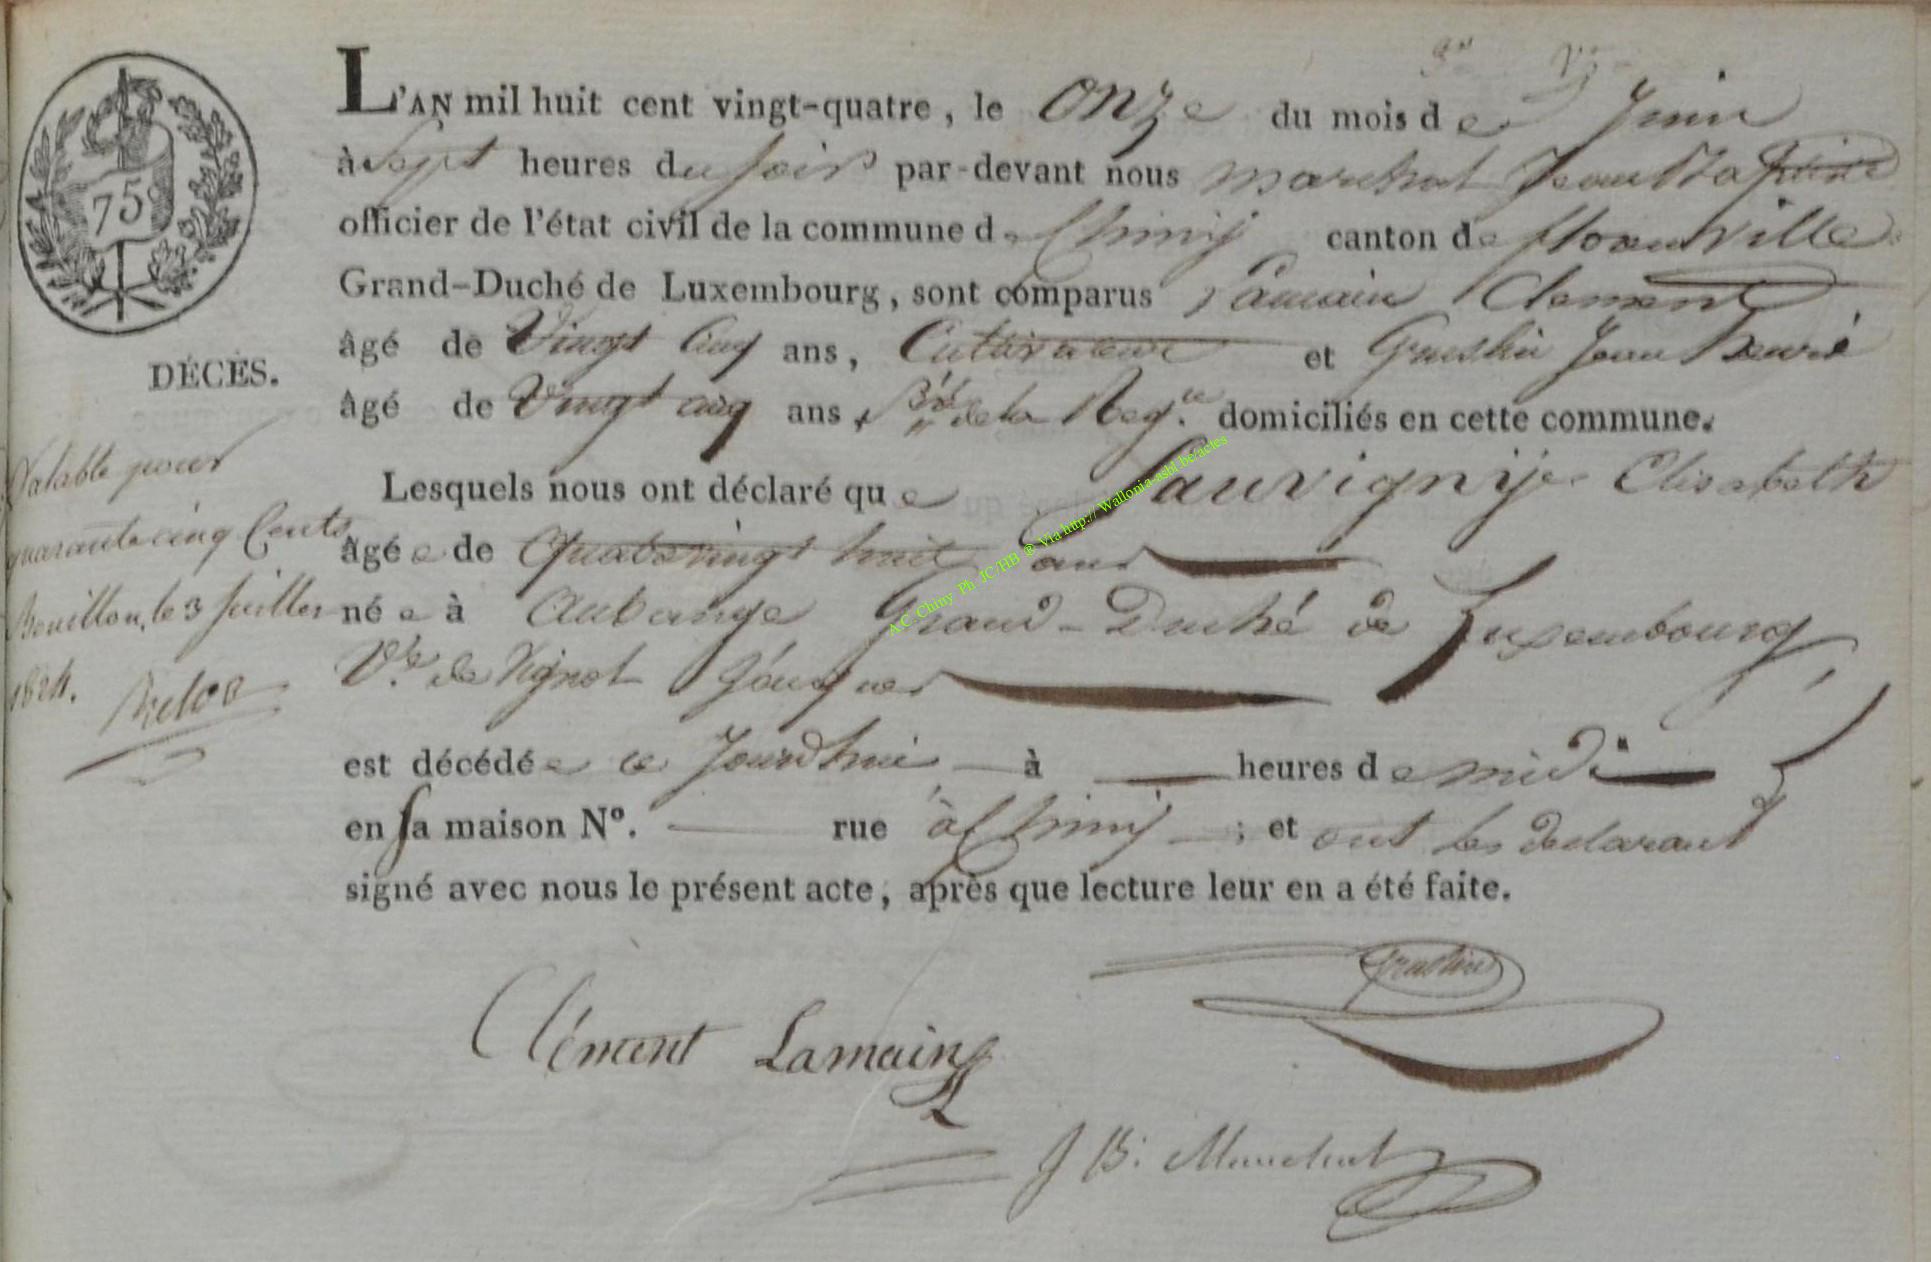 L'AN mil huit cent vingt-quatre, le onze du mois de Juin
à Sept heures du soir par-devant nous marchal Jean Baptiste
officier de l'état civil de la commune de Chiny canton de florenville
Grand-Duché de Luxembourg, sont comparus Lamain Clement
âgé de Vingt Cinq ans, Cultivateur et Grushin Jean Henri
âgé de Vingt cinq ans, de la Reg.ce domiciliés en cette commune.
Lesquels nous ont déclaré que Sauvignye Elisabeth
âgée de Quatrevingt huit ans
née à Aubange Grand-Duché de Luxembourg
Ve. de Vignol Jacques
est décédée ce Jourdhui à heures de midi
en sa maison N°. rue à Chiny ; et ont les declarant
signé avec nous le présent acte, après que lecture leur en a été faite.
75
DÉCÈS.
Valable pour
quarante cinq Cents
Bouillon, le 3 Juillet
1824.
A.C. Chiny Ph JC/HB @ Via http://Wallonia-asbl.be/actes
Clément Lamain
J B: Marchal